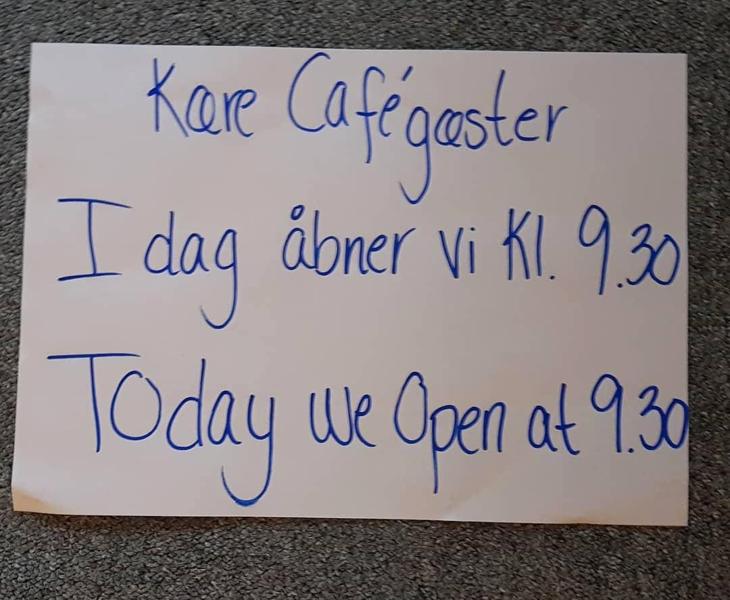 Kære Cafégæster
I dag åbner vi Kl. 9.30
Today we Open at 9.30